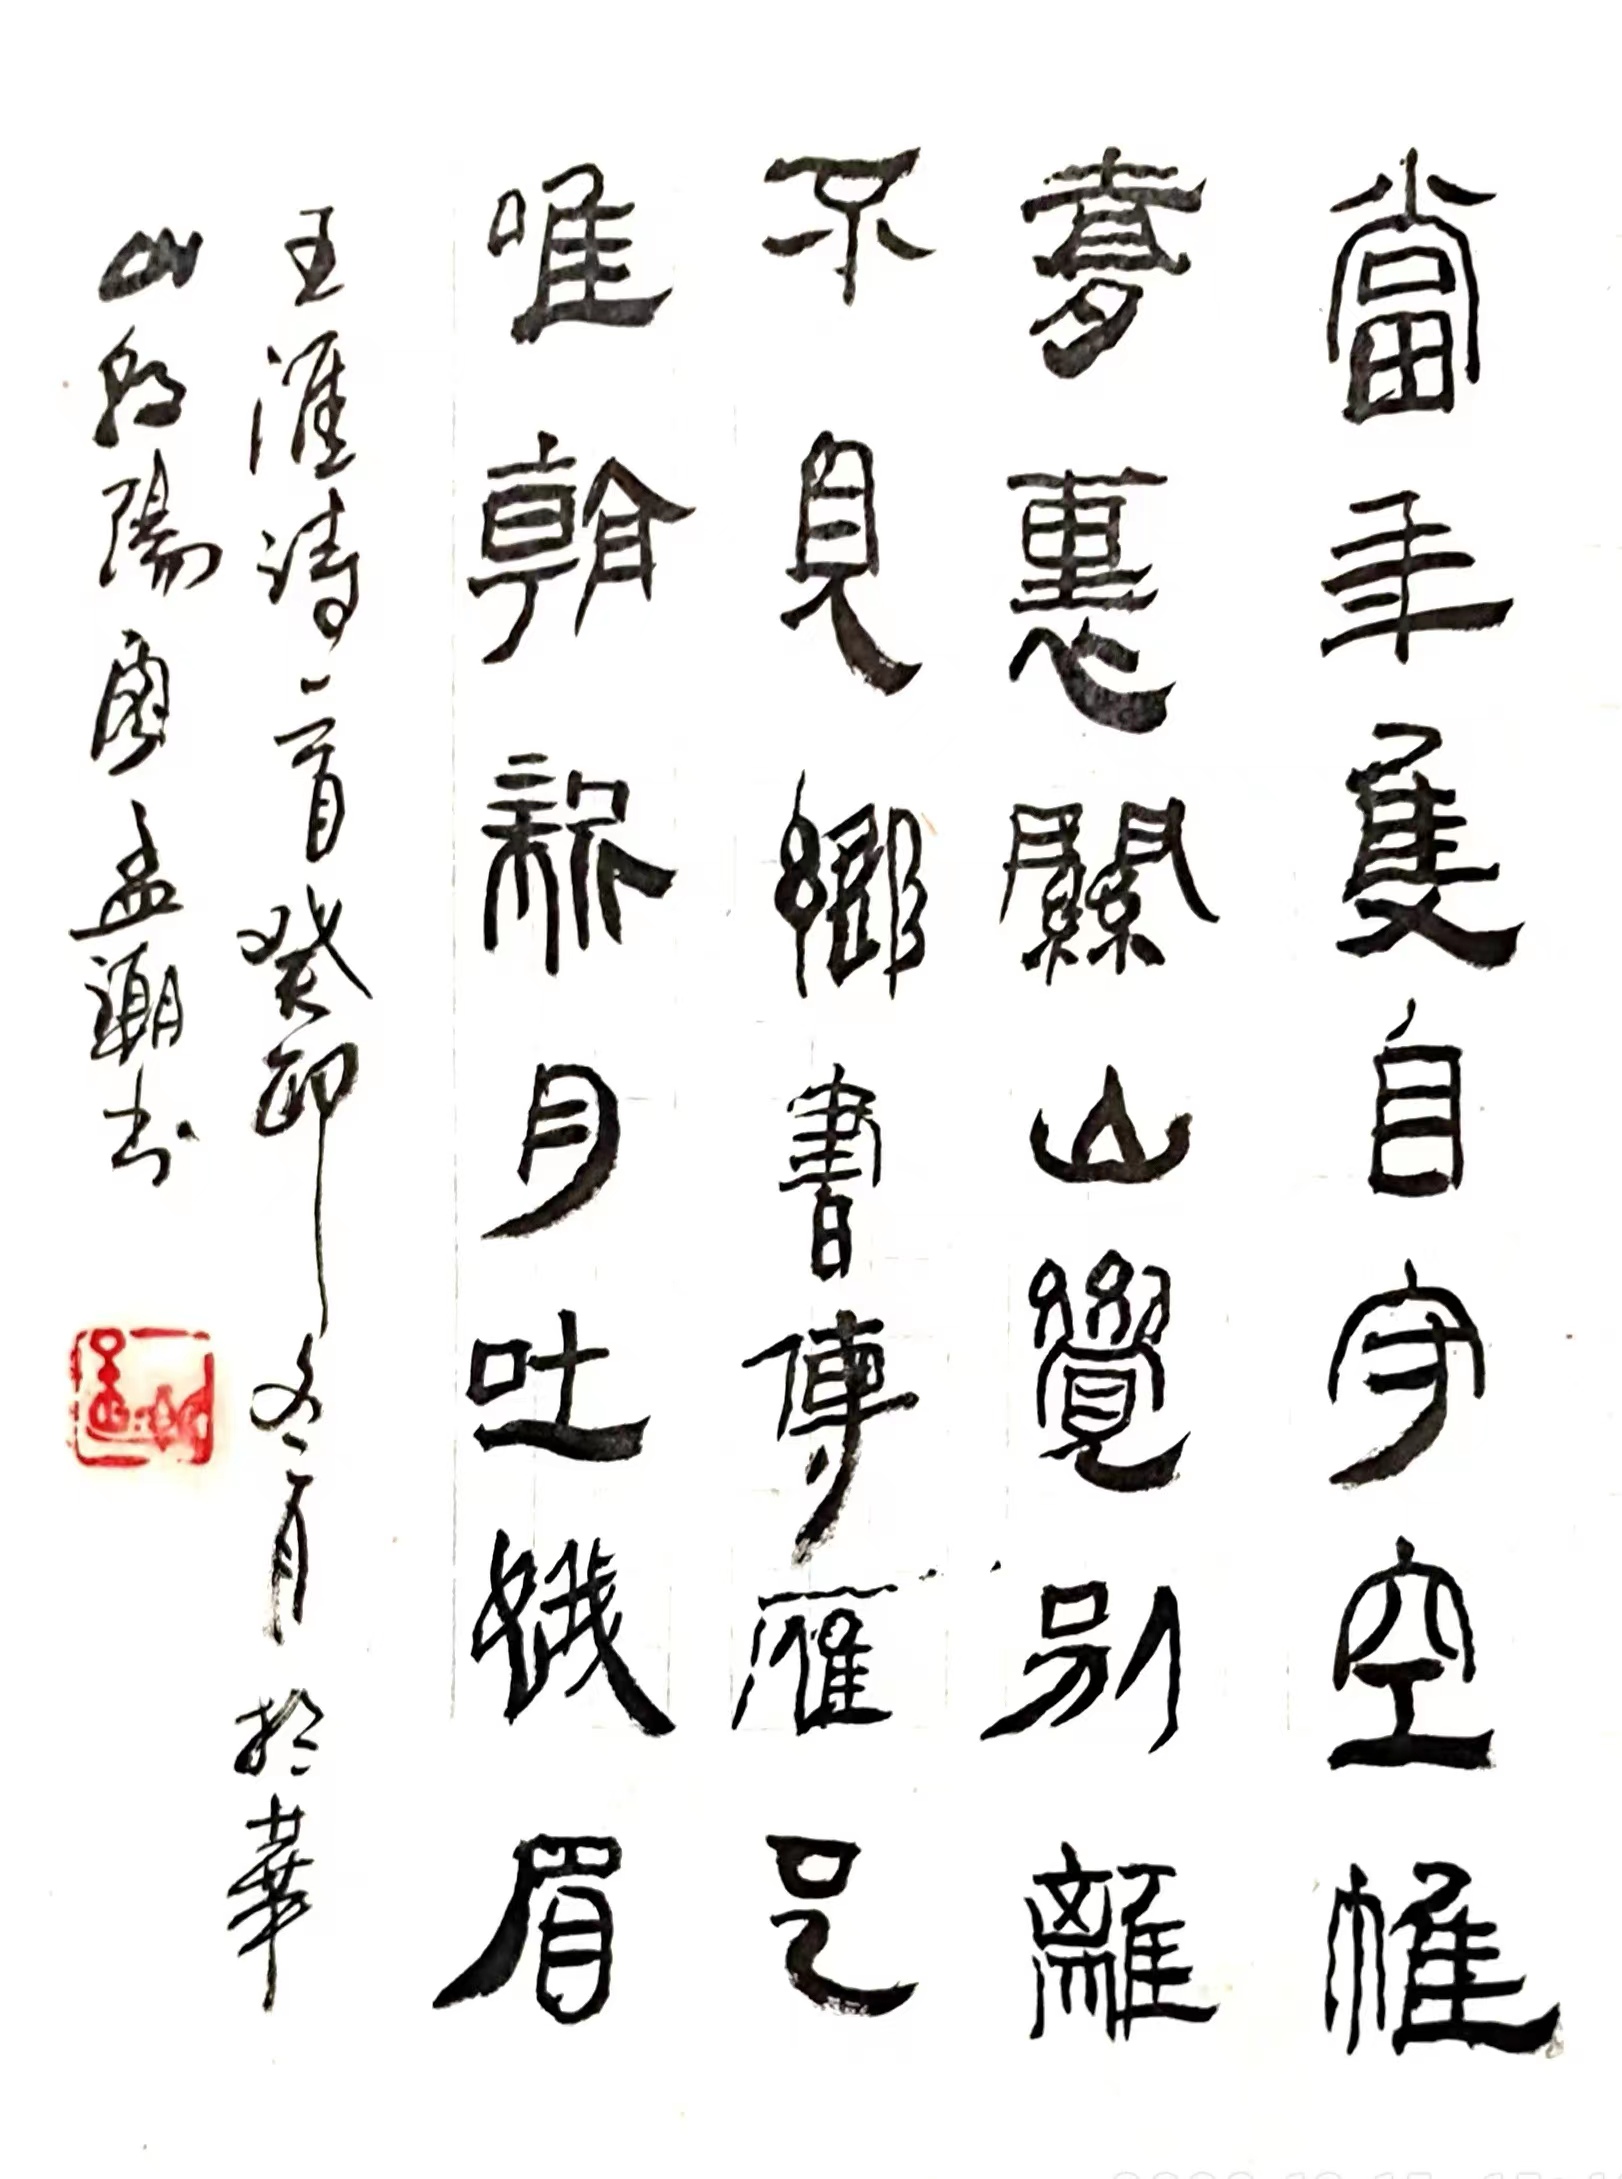 當年隻自守空帷
夢關山覺別離
不見鄉書傳雁足
唯朝新月吐娥眉
王涯詩一首癸卯冬月於華
山陽廖孟潮书